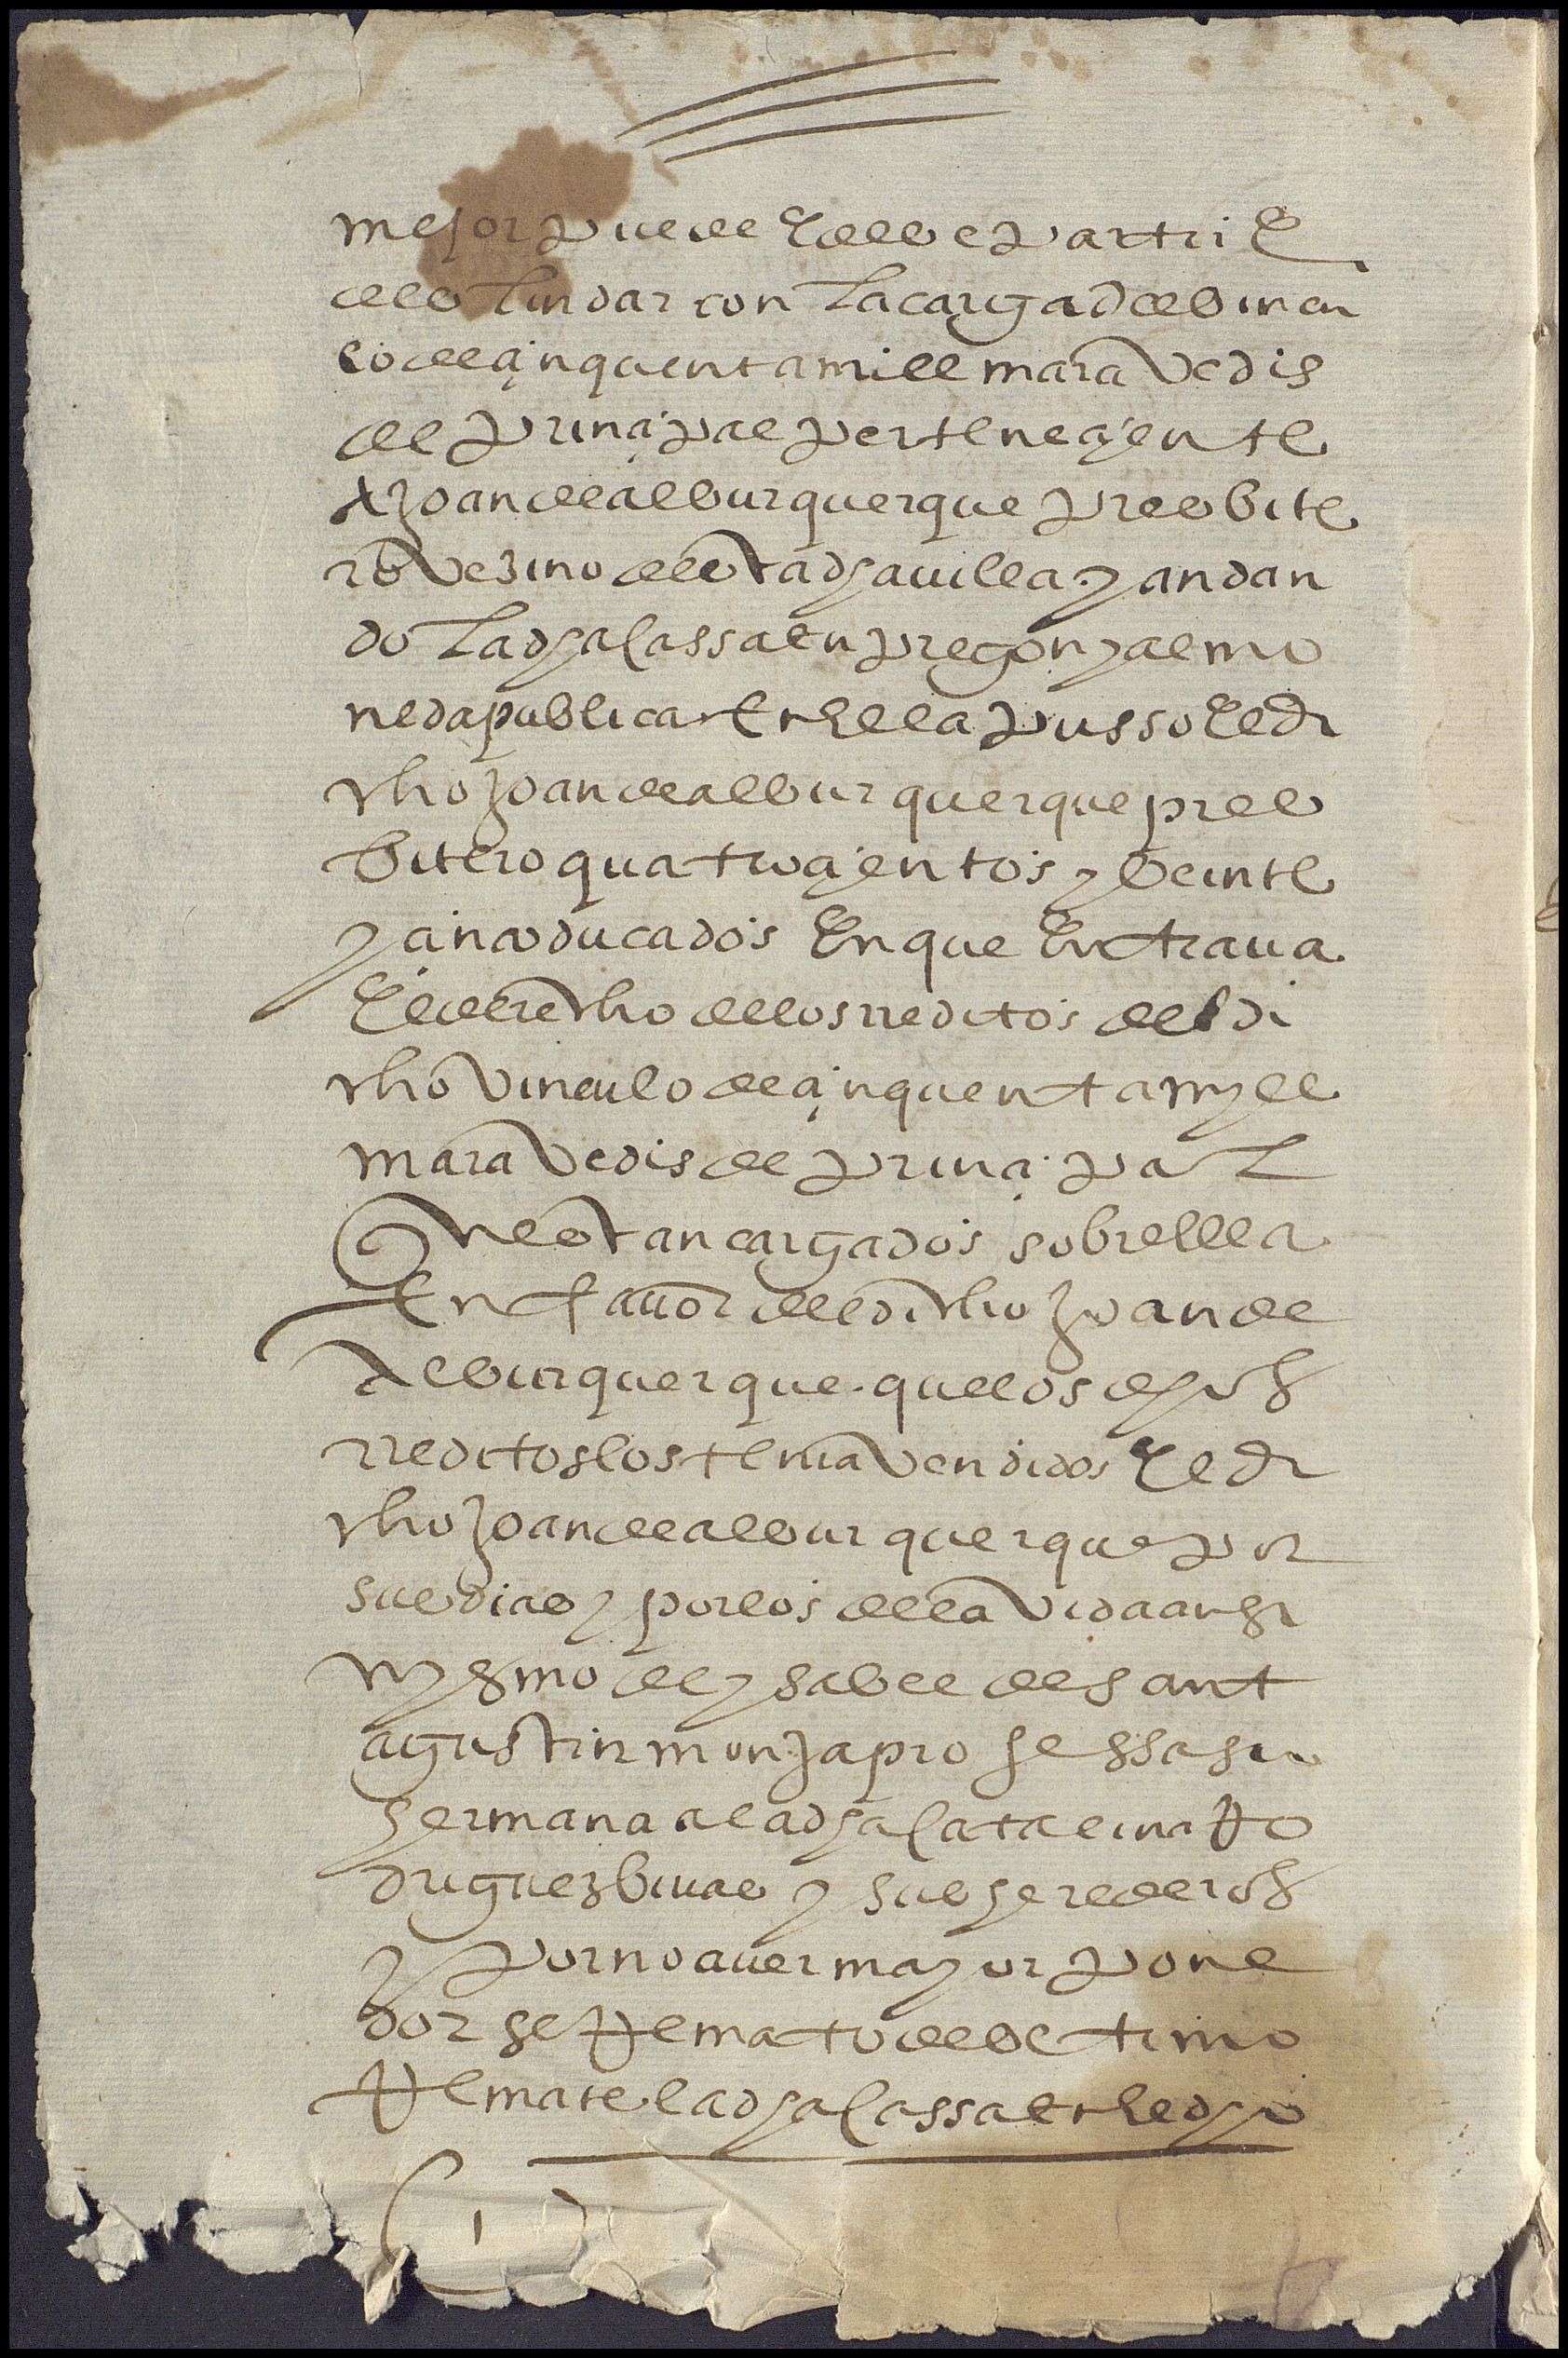 mejor puede E debe partir E
deslindar con la carga del vincu
lo de çinquenta mill maravedis
de prinçipal perteneçiente
A Joan de alburquerque presbite
ro vezino desta dha villa y andan
do la dha cassa en pregon y almo
neda publica En Ella pusso El di
cho Joan de alburquerque pres
bitero quatroçientos y beinte
y çinco ducados En que Entraua
El derecho de los rreditos del di
cho vinculo de çinquenta myll
maravedis de prinçipal
Que estan cargados sobrella
En fauor del dicho Joan de
Alburquerque. que los dhos
rreditos los tenia vendidos El di
cho Joan de alburquerque por
sus dias y por los de la vida ansi
mysmo de ysabel de sant
agustin monja professa su
hermana a la dha catalina Ro
driguez biuda y sus herederos
y por no auer mayor pone
dor se Remato de vltimo
Remate la dha cassa en El dho
( 1 )